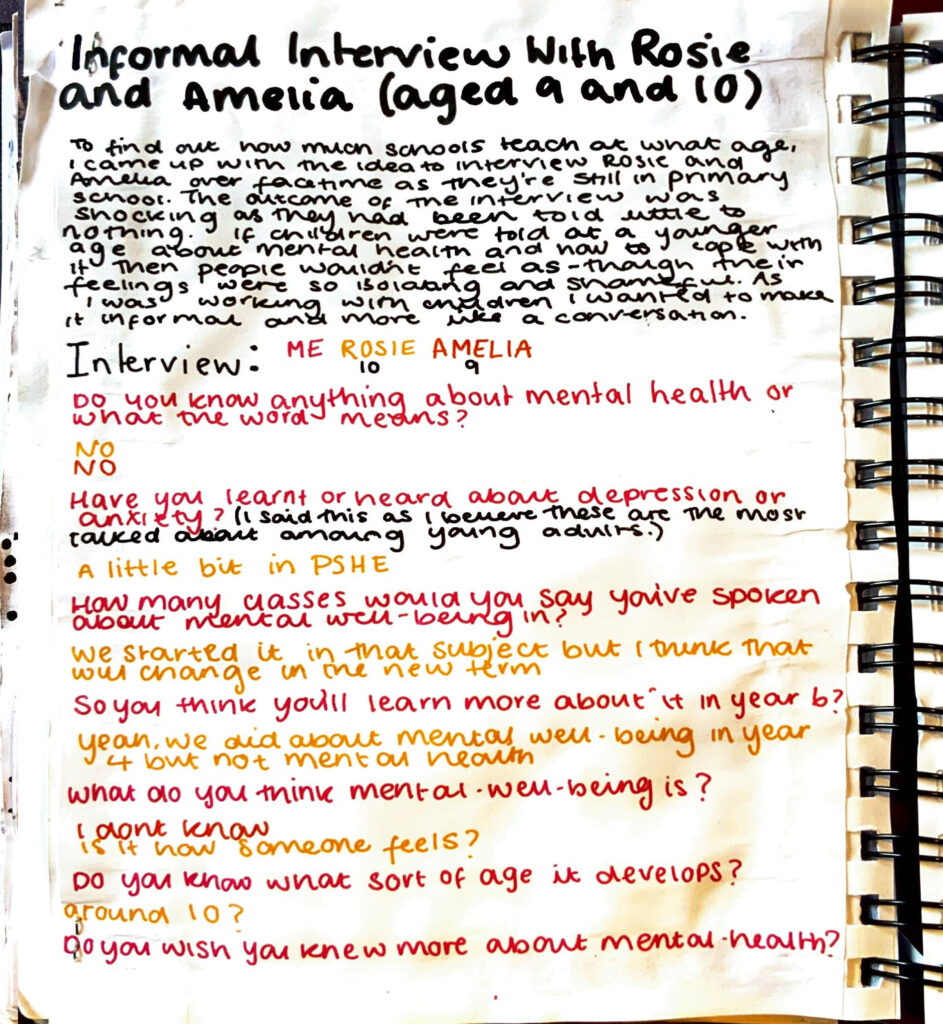 Informal Interview With Rosie
and Amelia (aged 9 and 10)
To find out how much schools teach at what age,
I came up with the idea to interview Rosie and
Amelia over facetime as they're still in primary
school. The outcome of the interview was
shocking as they had been told little to
nothing. If children were told at a younger
age about mental health and how to cope with
it then people wouldnt feel as-though their
feelings were so isolating and shameful. As
I was working with children I wanted to make
it informal and more like a conversation.
Interview: ME ROSIE AMELIA
10 9
Do you know anything about mental health or
what the word means?
NO
NO
Have you learnt or heard about depression or
anxiety? (I said this as I believe these are the most
talked about amoung young adults.)
A little bit in PSHE
How many classes would you say you've spoken
about mental well-being in?
We started it in that subject but I think that
will change in the new term
So you think you'll learn more about it in year 6?
yeah, we did about mental well-being in year
4 but not mental health
what do you think mental-well-being is?
I dont know
is it how someone feels?
Do you know what sort of age it develops?
around 10?
Do you wish you knew more about mental-health?